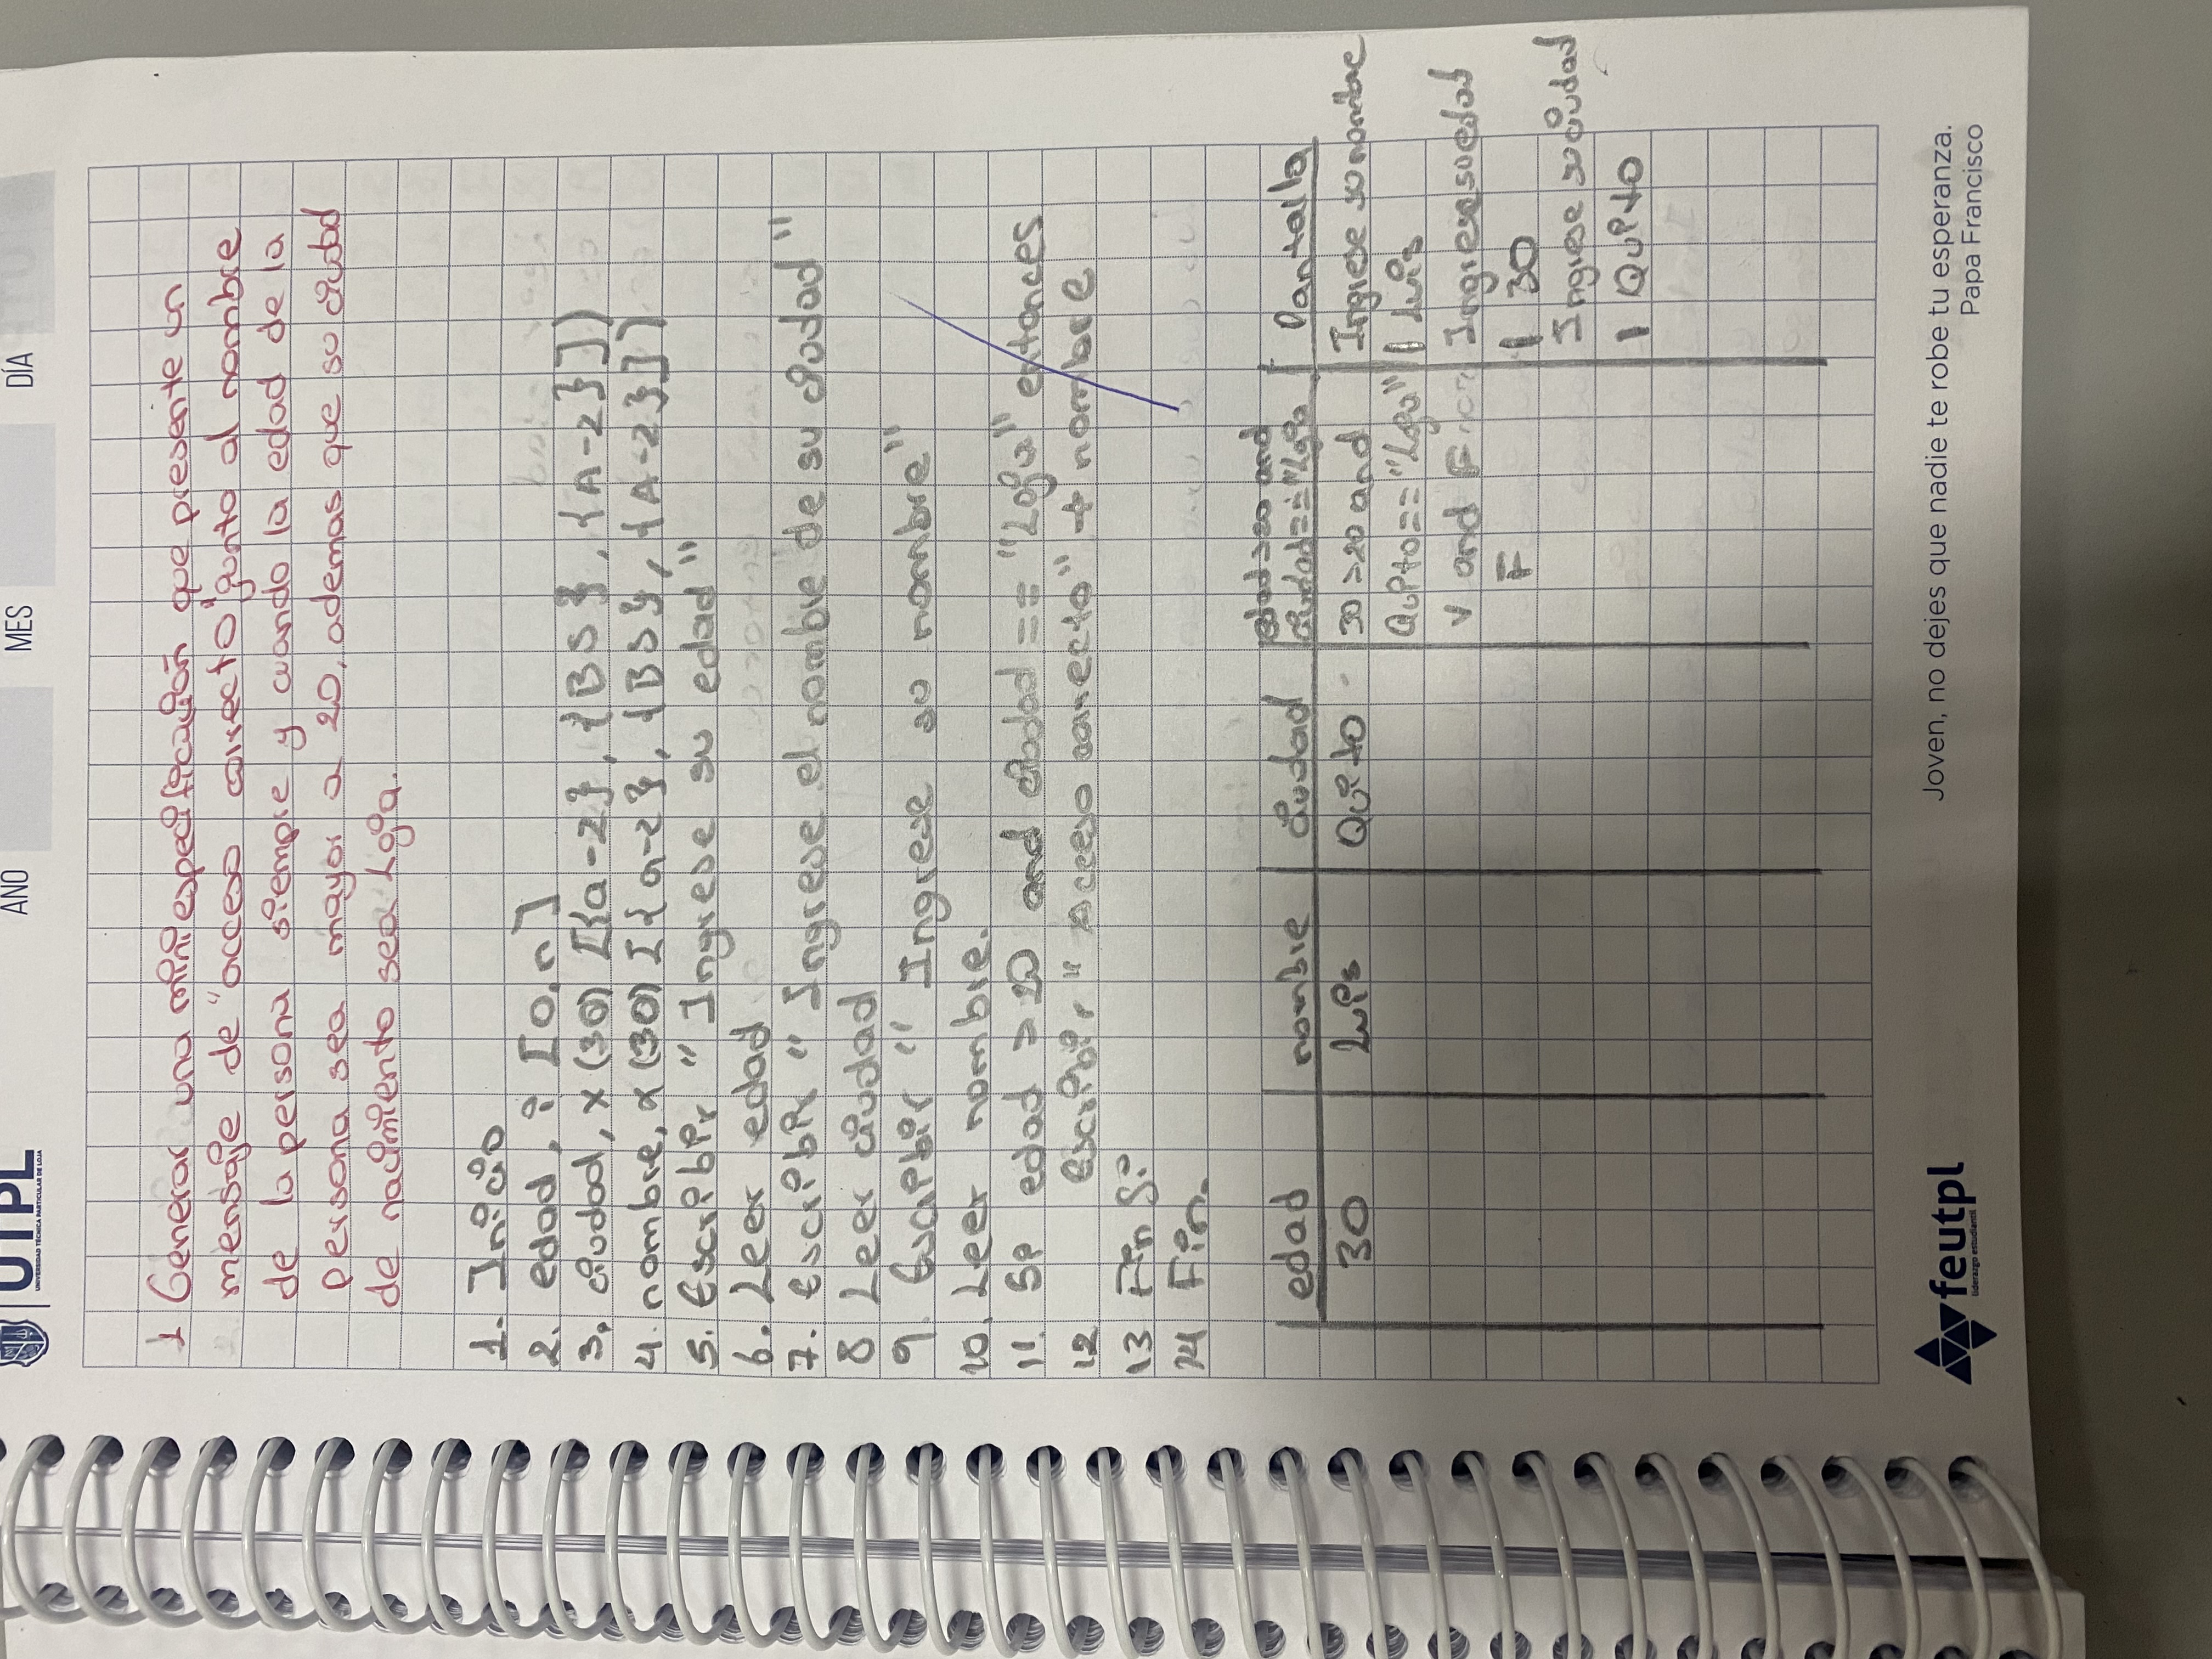 UTPL
UNIVERSIDAD TÉCNICA PARTICULAR DE LOJA
AÑO MES DÍA
1 Generar una miniespecificación que presente un
mensaje de "acceso correcto" junto al nombre
de la persona siempre y cuando la edad de la
persona sea mayor a 20, ademas que su ciudad
de nacimiento sea Loja.
1. Inicio
2. edad, i [0,n]
3. ciudad, x (30) [{a-z}, {BS}, {A-z}])
4. nombre, x (30) [{a-z}, {BS}, {A-z}])
5. Escribir " Ingrese su edad"
6. Leer edad
7. Escribir " Ingrese el nombre de su ciudad"
8 Leer ciudad
9. Escribir " Ingrese su nombre"
10. Leer nombre.
11. Si edad > 20 and ciudad == "Loja" entonces
12 Escribir " Acceso correcto" + nombre
13 Fin Si
14 Fin.
edad nombre ciudad edad >20 and ciudad=="Loja Pantalla
30 Luis Quito 30 >20 and Ingrese su nombre
Quito=="Loja" | Luis
V and F Ingrese su edad
F | 30
Ingrese su ciudad
| Quito
feutpl
liderazgo estudiantil
Joven, no dejes que nadie te robe tu esperanza.
Papa Francisco